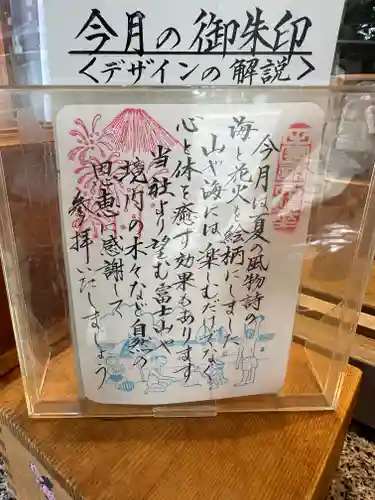 今月の御朱印
<デザインの解説>
今月は夏の風物詩の
海と花火を絵柄にしました
山や海には楽しむだけでなく
心と体を癒す効果もあります
当社より望む富士山や
境内の木々など自然の
恩恵に感謝して
参拝いたしましょう